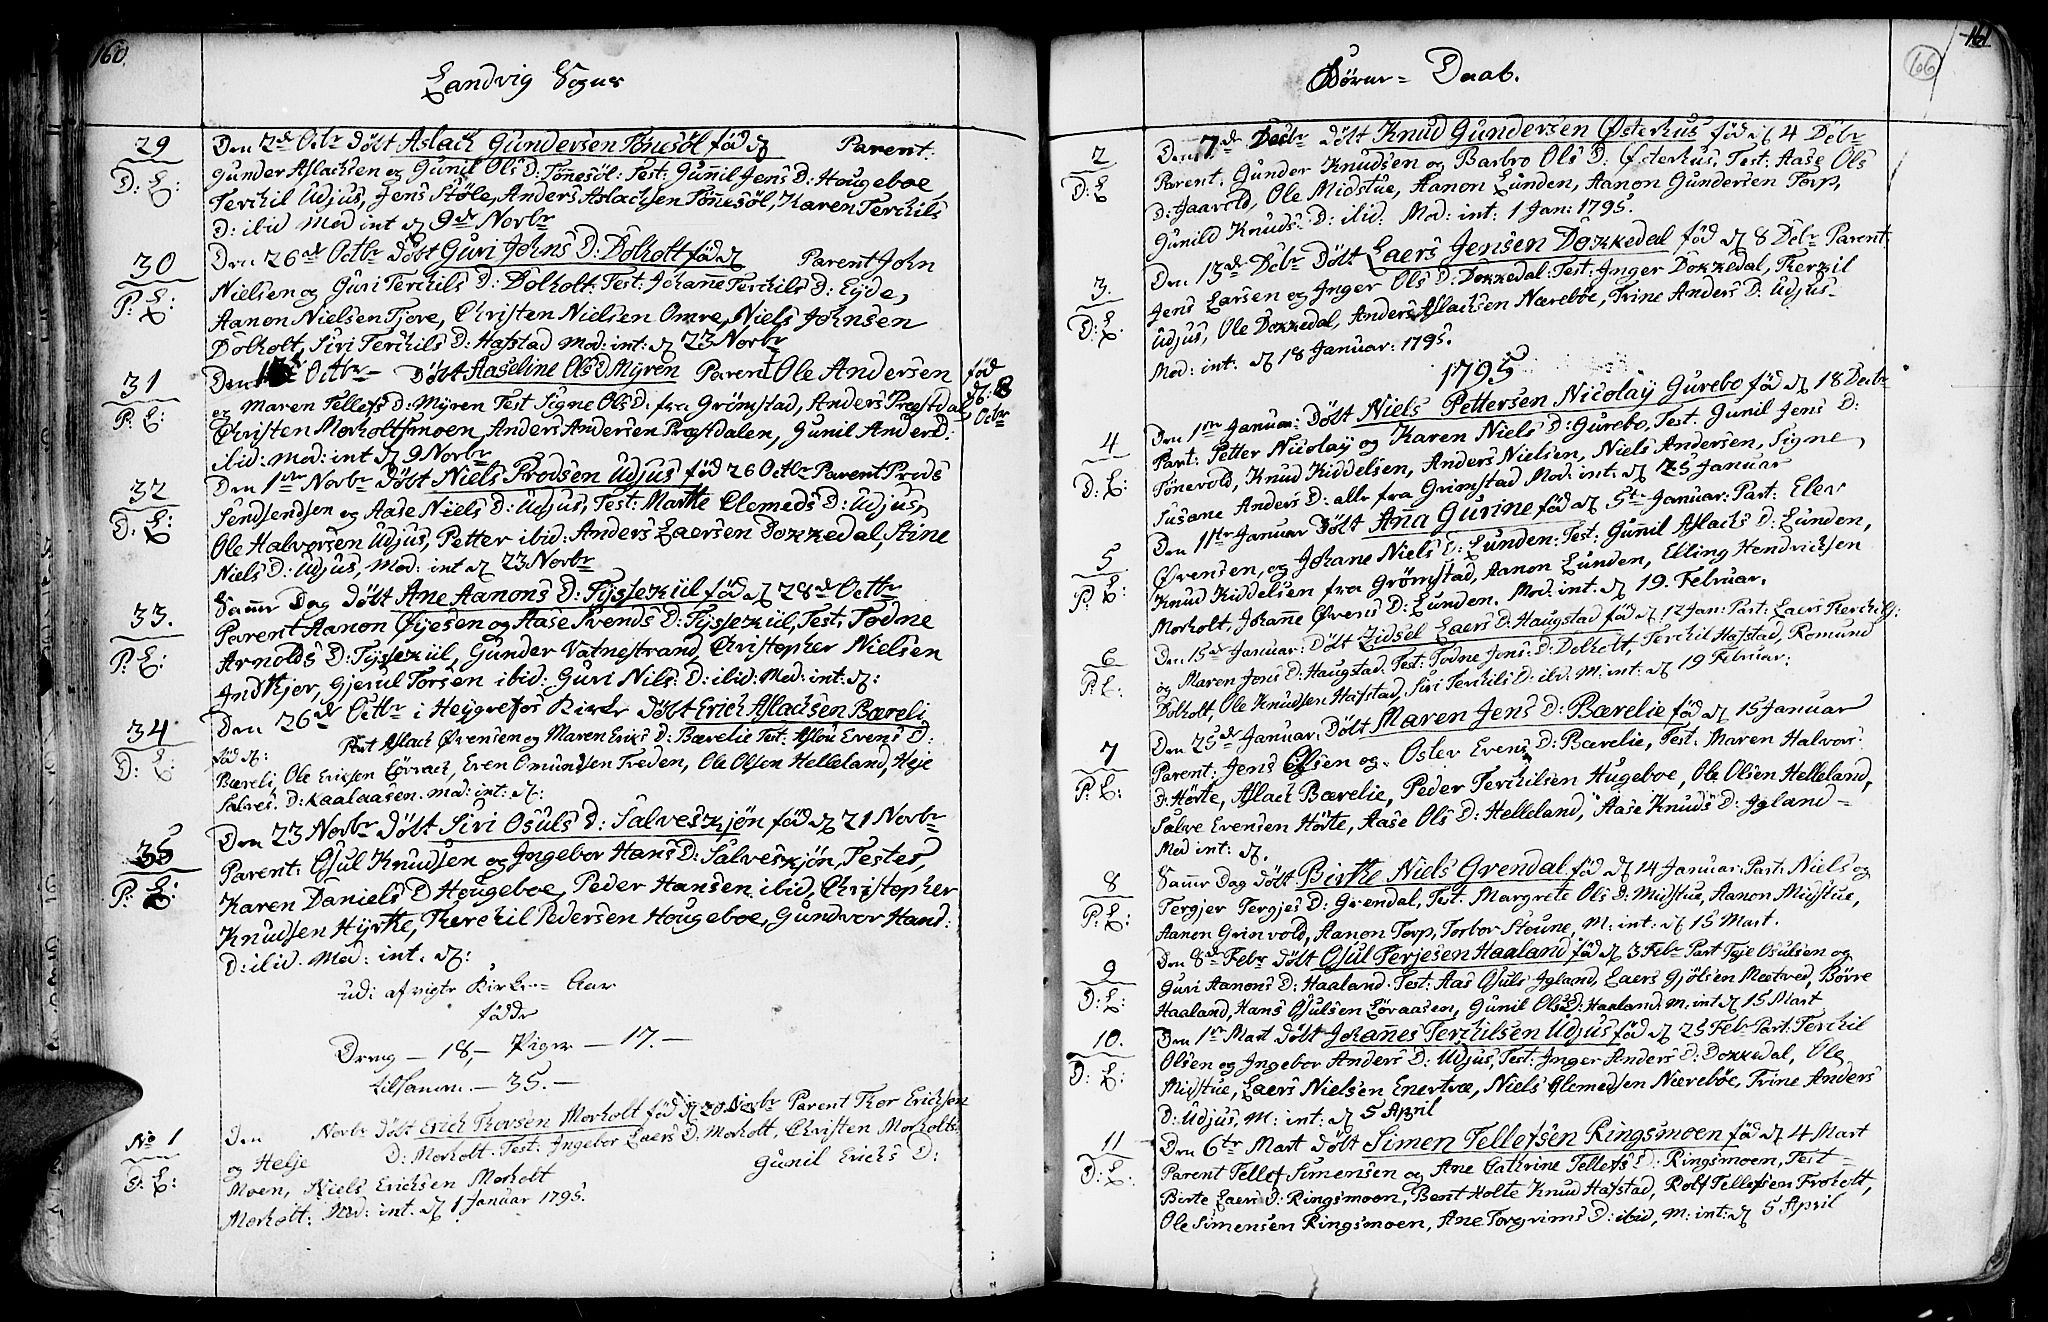 160.
Landvig Sogns
29
D: L:
Den 2d Octbr döbt Aslach Gundersen Tönesöl föd d Parent:
Gunder Aslachsen og Gunil Ols D: Tönesöl: Test: Gunil Jens D: Hougeboe
Terchil Udjus, Jens Stöle, Anders Aslachsen Tönnesöl, Karen Terchils
D: ibid Mod int d 9d Norbr
30
P. L:
Den 26d Octbr döbt Guri Johns D: Dolholt föd d Parent John
Nielsen og Guri Terchils D: Dolholt: Test: Johane Terchils D: Eyde,
Aanon Nielsen Tjore, Christen Nielsen Omre, Niels Johnsen
Dolholt, Siri Terchils D: Hafstad Mod: int: d 23 Norbr
31
P. L:
Den Octbr – Döbt Aaseline Ols D Myren Parent Ole Andersen föd
og Maren Tellefs D: Myren Test Signe Ols D: fra Grömstad, Anders Præstdal d: 8 Octbr
Christen Morholtsmoen, Anders Andersen Præstdalen, Gunil Anders D:
ibid: mod: int d 9 Norbr
32
D. L:
Den 1ste Norbr döbt Niels Brodsen Udjus föd 26 Octbr Parent Prods
Sendsendsen og Aase Niels D: Udjus, Test: Marthe Clemeds D: Udjus,
Ole Halvorsen Udjus, Petter ibid: Anders Laersen Dokkedal, Stine
Niels D: Udjus, Mod: int d 23 Norbr
33.
P. L:
Samme Dag döbt Ane Aanons D: Fyssekiil föd d 28d Octbr
Parent Aanon Öyesen og Aase Svends D: Fyssekiil, Test: Todne
Arnolds D: Fyssekiil, Gunder Vatnestrand, Christopher Nielsen
Indkjer, Gjerul Torsen ibid: Guri Nils: D: ibid: Mod: int: d:
34
D: L:
Den 26d Octbr i Heygrefos Kirke döbt Erich Aslachsen Bæreli
föd d: Part Aslach Övensen og Maren Erics D: Bærelie Test: Aslou Evens D:
Bæreli, Ole Ericsen Lörrach, Even Omundsen Treden, Ole Olsen Helleland, Heje
Salves. D: Kaalaasen. mod: int: d:
35
P: L:
Den 23 Norbr döbt Siri Osuls D: Salveskjön föd d 21 Norbr
Parent: Osul Knudsen og Ingebor Hans D: Salveskjön, Testes,
Karen Daniels D Hougeboe, Peder Hansen ibid, Christopher
Knudsen Hyrtte, Therchil Pedersen Hougeboe, Gundvor Hand:
D: ibid. Mod: int. d:
udi afvigte Kirke= Aar
födde
Dreng – 18, – Piger – 17. –
tilsamme. – 35. –
No 1
D: L:
Den Norbr döbt Erich Thorsen Morholt föd d 20 Norbr Parent Thor Erichsen
og Helje D: Morholt. Test: Ingebor Laers D: Morholt, Christen Morholts
Moen, Niels Erichsen Morholt Gunil Erichs D:
Morholt: Mod: int. d 1 Januar 1795.
161
66
Börne= Daab.
2
D: L
Den 7d Decbr döbt Knud Gundersen Österhus föd d 4 Debr
Parent: Gunder Knudsen og Barbro Ols D: Österhus, Test: Aase Ols
D: Jaavold, Ole Midstue, Aanon Lunden, Aanon Gundersen Torp,
Gunild Knuds: D: ibid: Mod: int: 1 Jan: 1795.
3.
D: L.
Den 13d Debr Döbt Laers Jensen Dokkedal föd d 8 Debr Parent
Jens Larsen og Inger Ols D: Dokkedal: Test: Inger Dokkedal, Therkil
Udjus, Ole Dokkedal, Anders Aslachsen Næreböe, Trine Anders D: Udjus.
Mod: int. d 18 Januar: 1795.
1795
4
D. L:
Den 1ste Januar: Döbt Niels Pettersen Nicolay Gurebo föd d 18 Decbr
Part: Petter Nicolay og Karen Niels D: Gurebo, Test: Gunil Jens D:
Tönevold, Knud Kiddelsen, Anders Nielsen, Niels Andersen, Signe,
Susane Anders D: alle fra Grimstad Mod: int: d 25 Januar
5
P. L:
Den 11te Januar Döbt Ana Gurine föd d 5te Januar: Part: Elev
Övensen, og Johane Niels D: Lunden: Test: Gunil Aslachs D: Lunden,
Knud Kiddelsen fra Grömstad, Aanon Lunden, Elling Hendrichsen
Morholt, Johanne Övens D: Lunden. Mod: int: d 19. Februar.
6
P. L:
Den 15d Januar: Döbt Zidsel Laers D: Haugstad föd d 12 Jan: Part: Laers Therchils:
og Maren Jens D: Haugstad. Test: Todne Jons: D: Dolholt, Terchil Hafstad, Romund
Dolholt, Ole Knudsen Hafstad, Siri Terchils D: ibid: M: int: d 19 Februar:
7
P: L:
Den 25d Januar: Döbt Maren Jens D: Bærelie föd d 15 Januar
Parent: Jens Olsen og Oslev Evens D: Bærelie, Test: Maren Halvors:
D: Hörte, Aslach Bærelie, Peder Terchilsen Hugeboe, Ole Olsen Helleland,
Salve Evensen Hörte, Aase Ols D: Helleland, Aase Knuds D: Igland=
Mod int: d.
8
P. L:
Samme Dag döbt Birthe Niels Grendal föd d 14 Januar: Part: Niels og
Tergjer Tergjes D: Grendal, Test. Margrete Ols D: Midstue, Aanon Midstue,
Aanon Grinvold, Aanon Torp, Torbor Stoune, M: int: d 15 Mart.
9
D: L:
Den 8d Febr döbt Osul Terjesen Haaland föd d 3 Febr Part Teje Osulsen og
Guri Aanons D: Haaland. Test: Aas Osuls Igland, Laers Gjölsen Mæetved, Börre
Haaland, Hans Osulsen Löraasen, Gunil Ols D: Haaland: m. int d 15 Mart
10.
D: L:
Den 1ste Mart döbt Johannes Terchilsen Udjus föd d 25 Febr Part: Terchil
Olsen og Ingebor Anders D: Udjus, Test: Inger Anders D: Dokkedal, Ole
Midstue, Laers Nielsen Enertræ, Niels Clemedsen Næreböe, Trine Anders
D: Udjus, M: int: d 5 April
11
D: L:
Den 6te Mart döbt Simen Tellefsen Ringsmoen föd d 4 Mart
Parent Tellef Simensen og Ane Cathrine Tellefs D: Ringsmoen, Test=
Birte Laers D: Ringsmoen, Bent Holte Knud Hafstad, Rolf Tellefsen Froholt,
Ole Simensen Ringsmoen, Ane Torgrims D: ibid, M: int: d 5 April